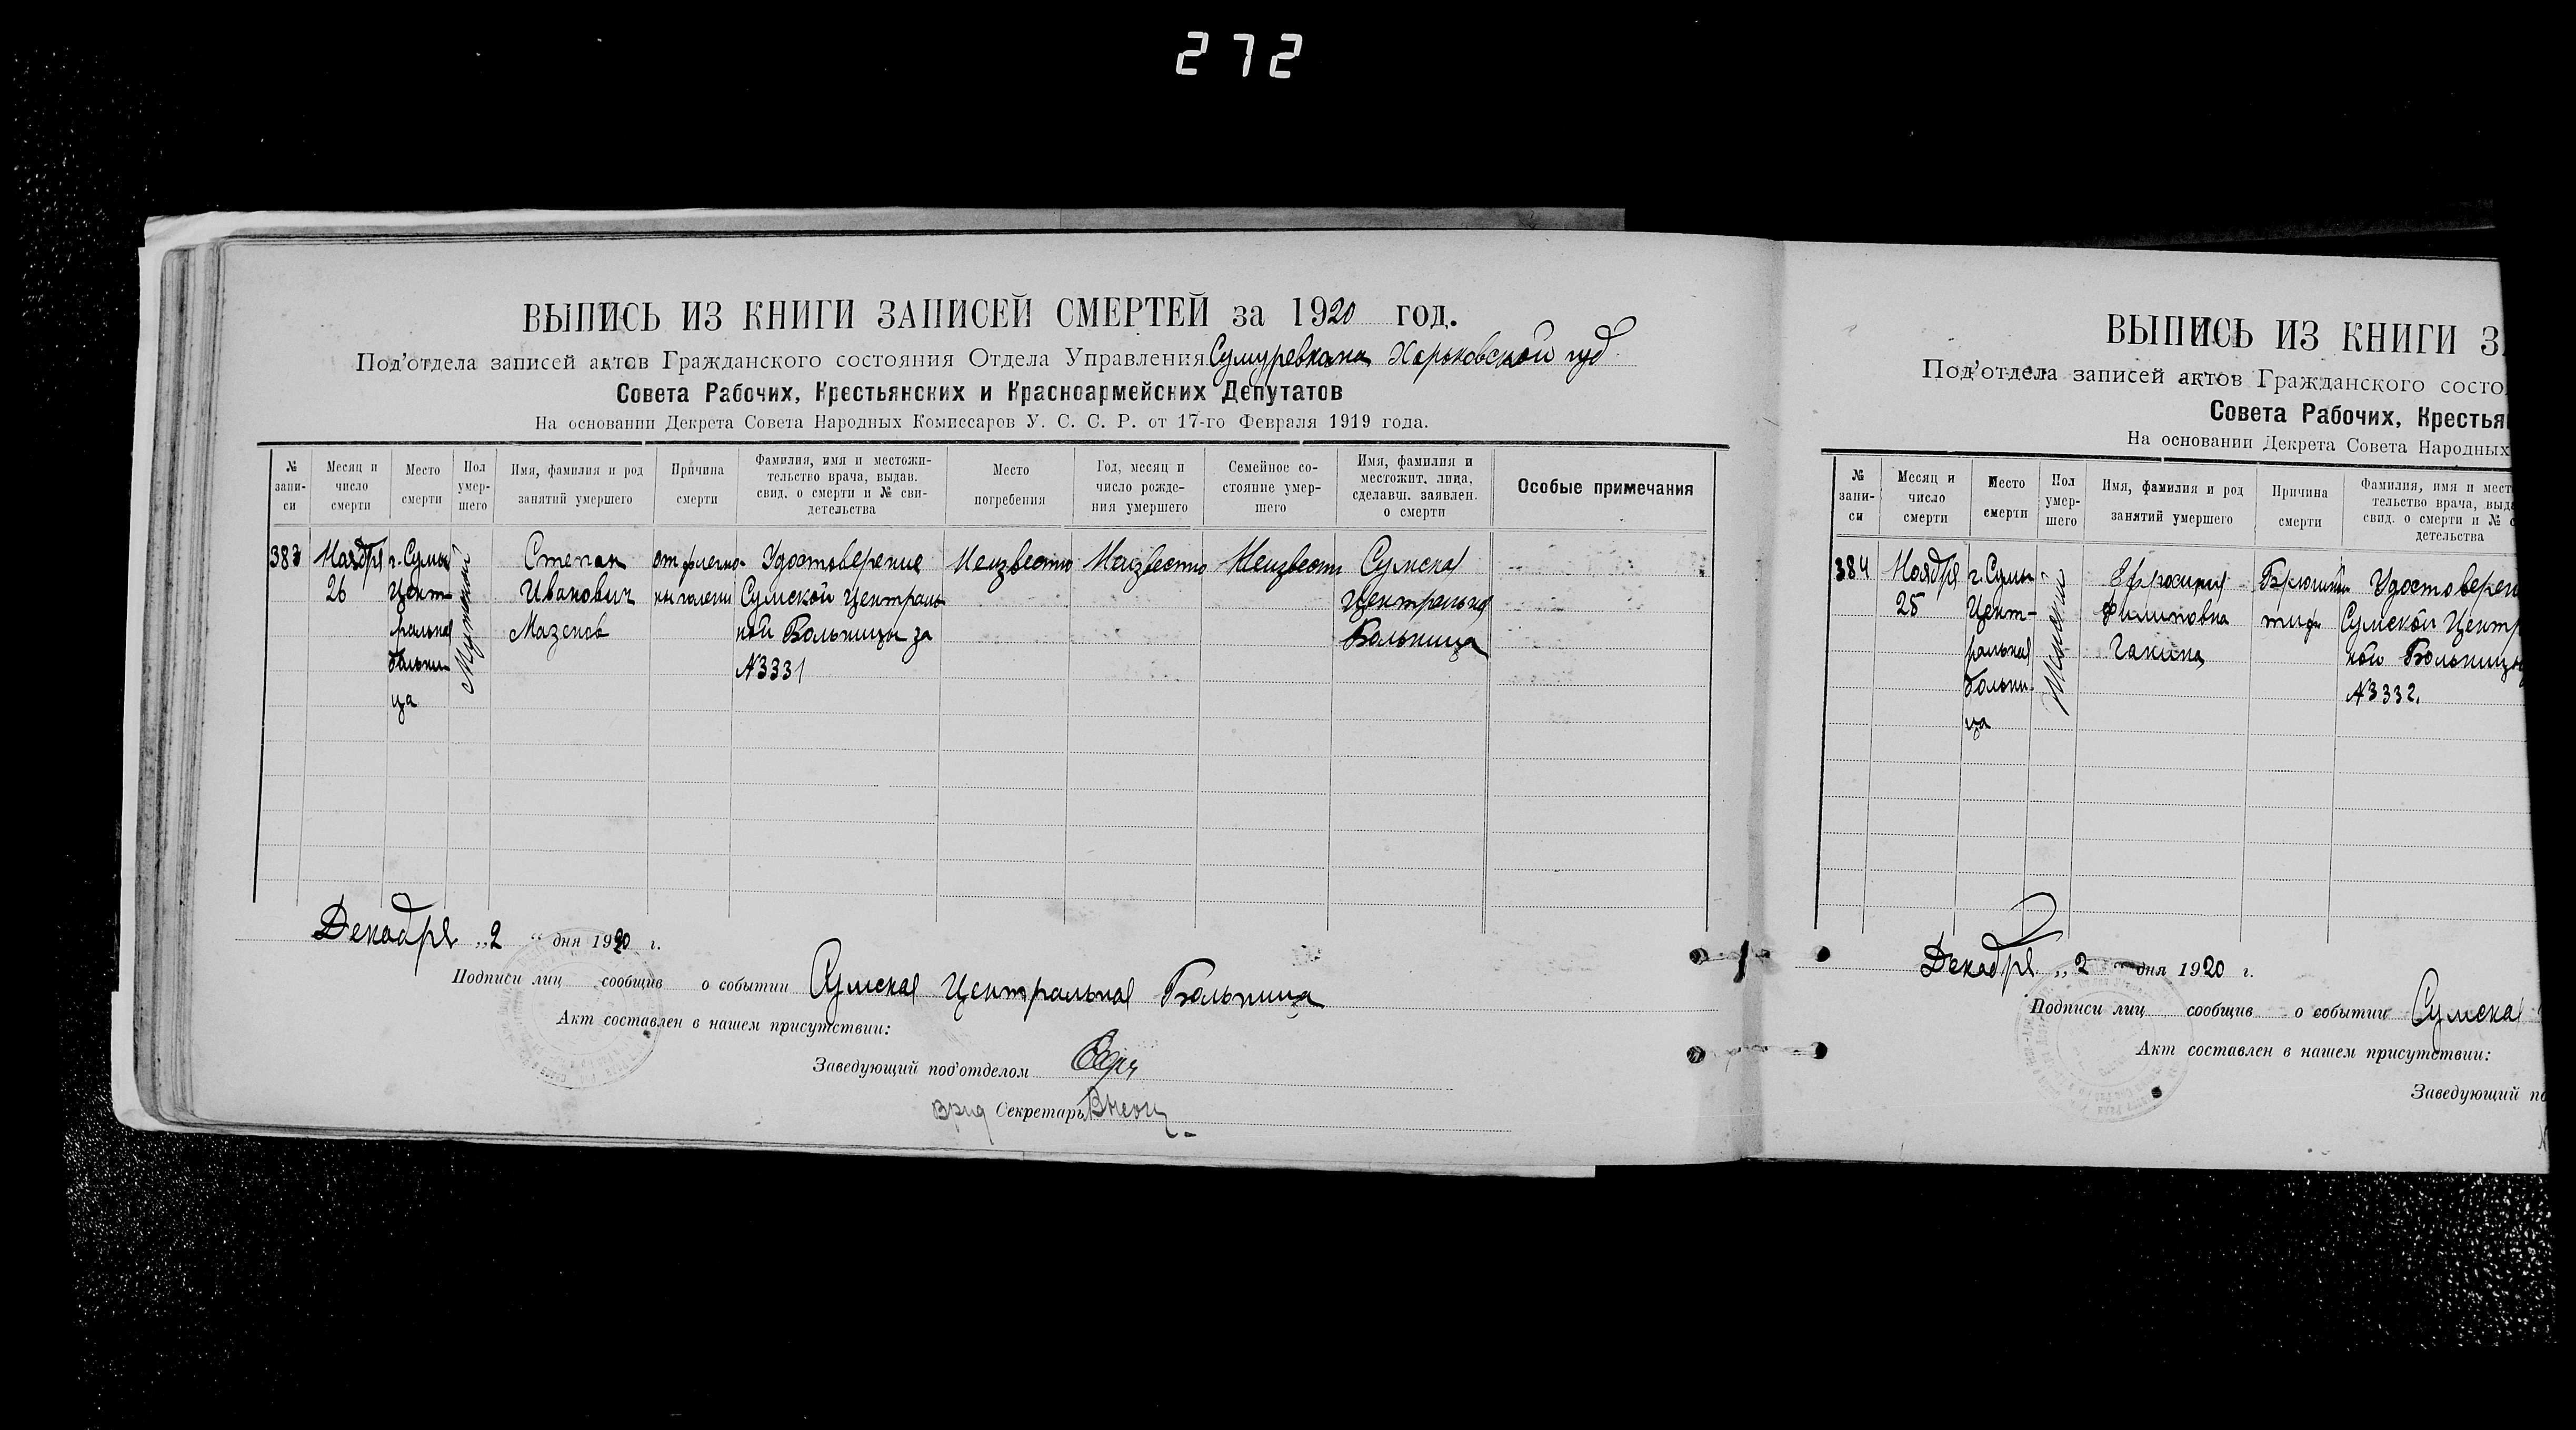 272
ВЫПИСЬ ИЗ КНИГИ ЗАПИСЕЙ СМЕРТЕЙ за 1920 год.
Под'отдела записей актов Гражданского состояния Отдела Управления Сумуревкома Харьковской губ.
Совета Рабочих, Крестьянских и Красноармейских Депутатов
На основании Декрета Совета Народных Комиссаров У. С. С. Р. от 17-го Февраля 1919 года.
№ запи-си
Месяц и число смерти
Место смерти
Пол умер-шего
Имя, фамилия и род занятий умершего
Причина смерти
Фамилия, имя и местожи-тельство врача, выдав. свид. о смерти и № сви-детельства
Место погребения
Год, месяц и число рожде-ния умершего
Семейное со-стояние умер-шего
Имя, фамилия и местожит. лица, сделавш. заявлен. о смерти
Особые примечания
383
Ноября
26
г. Сумы
Цент-
ральная
больни-
ца
Мужской
Степан
Иванович
от флегмо-
ны голени
Удостоверение
Сумской Централь-
ной Больницы за
№3331
Неизвестно
Неизвестно
Неизвестн
Сумская
Центральная
Больница
Декабря „2“ дня 1920 г.
Подписи лиц сообщив о событии Сумская Центральная Больница
Акт составлен в нашем присутствии:
Заведующий под'отделом
Врид Секретарь
ВЫПИСЬ ИЗ КНИГИ З
Под'отдела записей актов Гражданского состо
Совета Рабочих, Крестья
На основании Декрета Совета Народных
№ запи-си
Месяц и число смерти
Место смерти
Пол умер-шего
Имя, фамилия и род занятий умершего
Причина смерти
Фамилия, имя и мест
тельство врача, выда
свид. о смерти и №
детельства
384
Ноября
25
г. Сумы
Цент-
ральная
больни-
ца
Ефросиния
Филиповна
Брюшной
тиф
Удостоверен
Сумской Центр
ной Больницы
№3332.
Декабря „2“ дня 1920 г.
Подписи лиц сообщив о событии Сумская
Акт составлен в нашем присутствии:
Заведующий по